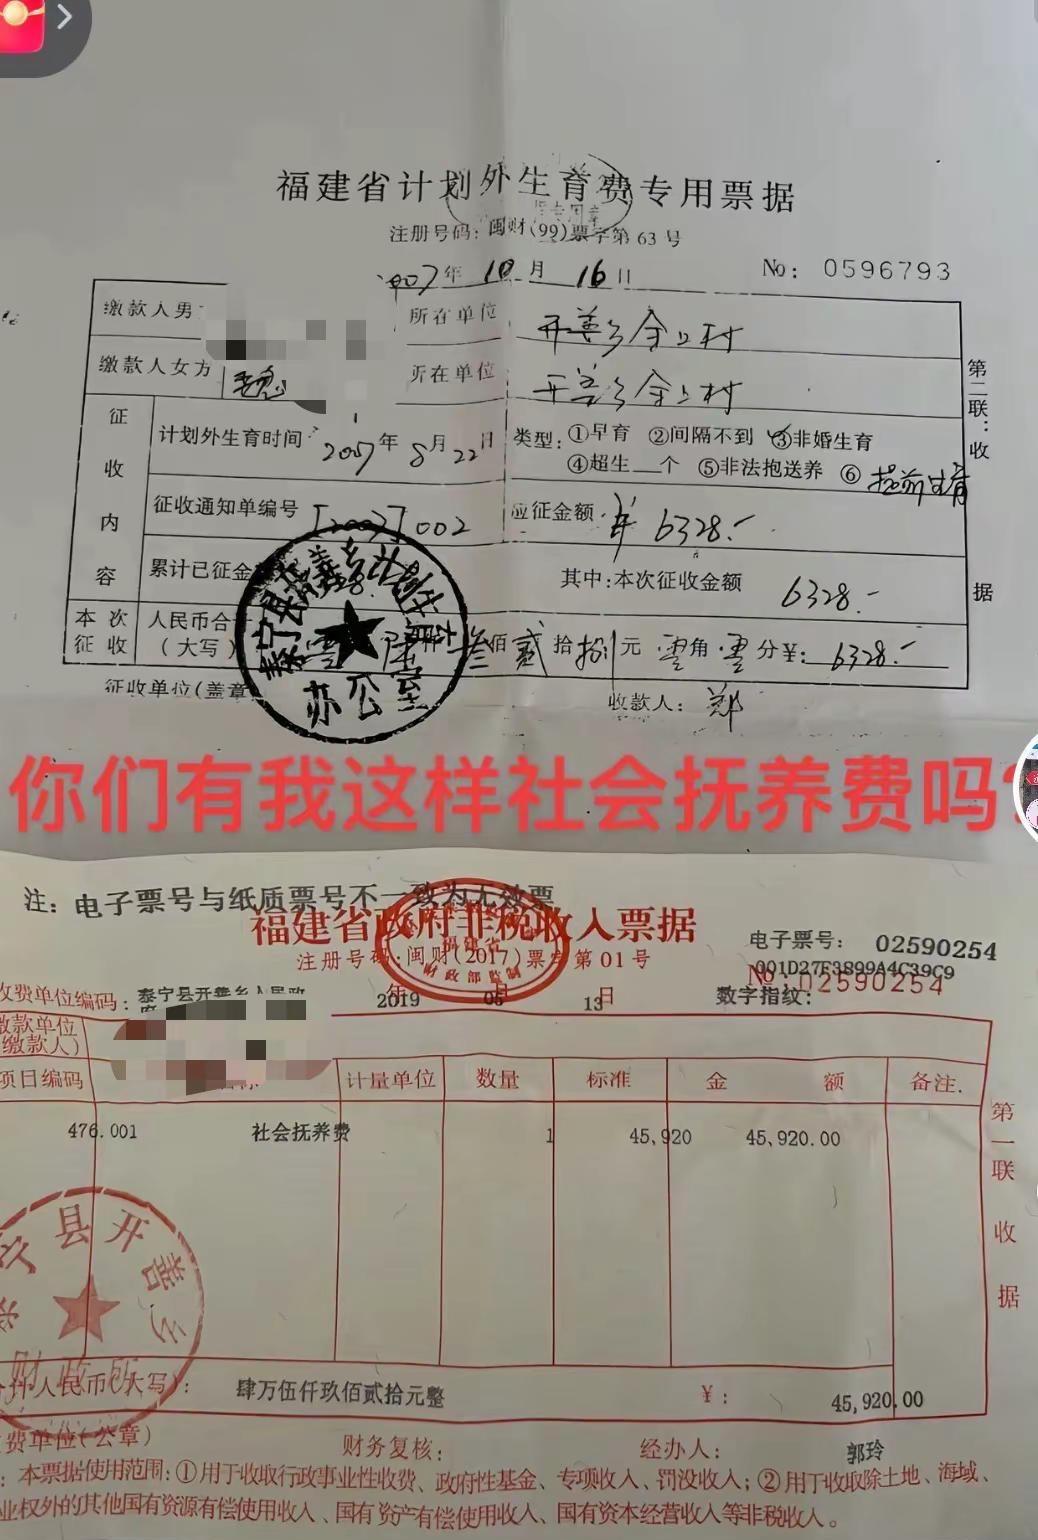 福建省计划外生育费专用票据
注册号码：闽财(99)票字第 63 号
2007年 10月 16日 No：0596793
缴款人男 所在单位 开善乡余上村
缴款人女方 所在单位 开善乡余上村
征收内容
计划外生育时间 2007年 8月 22日 类型：①早育 ②间隔不到 ③非婚生育
④超生__个 ⑤非法抱送养 ⑥ 提前生育
征收通知单编号 002 应征金额 ¥ 6328.-
累计已征金 其中：本次征收金额 6328.-
本次征收 人民币合计（大写） 零 陆仟 叁佰 贰拾 捌元 零角 零分 ¥：6328.-
征收单位(盖章 收款人：郑
第二联：收据
泰宁县开善乡计划生育办公室
你们有我这样社会抚养费吗?
注：电子票号与纸质票号不一致为无效票
福建省政府非税收入票据
注册号码：闽财(2017)票字第 01 号
福建省
财政部监制
电子票号： 02590254
001D27F3899A4C39C9
No：02590254
收费单位编码：泰宁县开善乡人民政府 2019年 05月 13日 数字指纹：
缴款单位
(缴款人)
项目编码 计量单位 数量 标准 金 额 备注.
476.001 社会抚养费 1 45,920 45,920.00
第一联 收据
县开善乡
财政所
合计人民币(大写)： 肆万伍仟玖佰贰拾元整 ¥： 45,920.00
费单位(公章) 财务复核： 经办人： 郭玲
：本票据使用范围：①用于收取行政事业性收费、政府性基金、专项收入、罚没收入；②用于收取除土地、海域、
业权外的其他国有资源有偿使用收入、国有资产有偿使用收入、国有资本经营收入等非税收入。